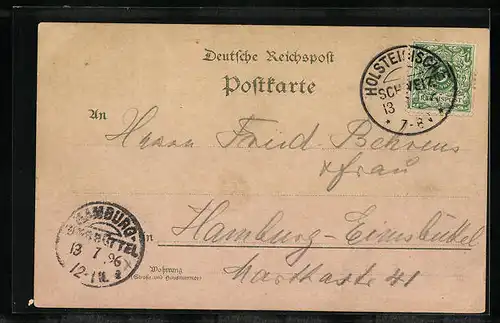 Deutsche Reichspost
Postkarte
HOLSTEINISCHE
SCHWEIZ
13
7-8
An
Herrn Fried Behrens
& Frau
HAMBURG-
13 7 96
12-1N.
in
Hamburg-Eimsbüttel
Wohnung
(Straße und Hausnummer)
Marktstraße 41